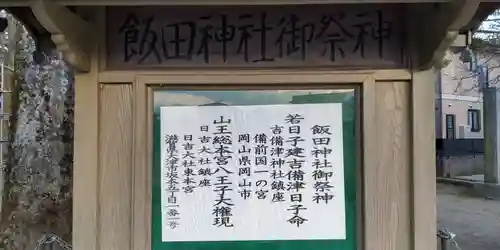 飯田神社御祭神
飯田神社御祭神
若日子建吉備津日子命
吉備津神社鎮座
備前国一の宮
岡山県岡山市
山王総本宮八王子大権現
日吉大社鎮座
日吉大社東本宮
滋賀県大津市坂本五丁目一番一号